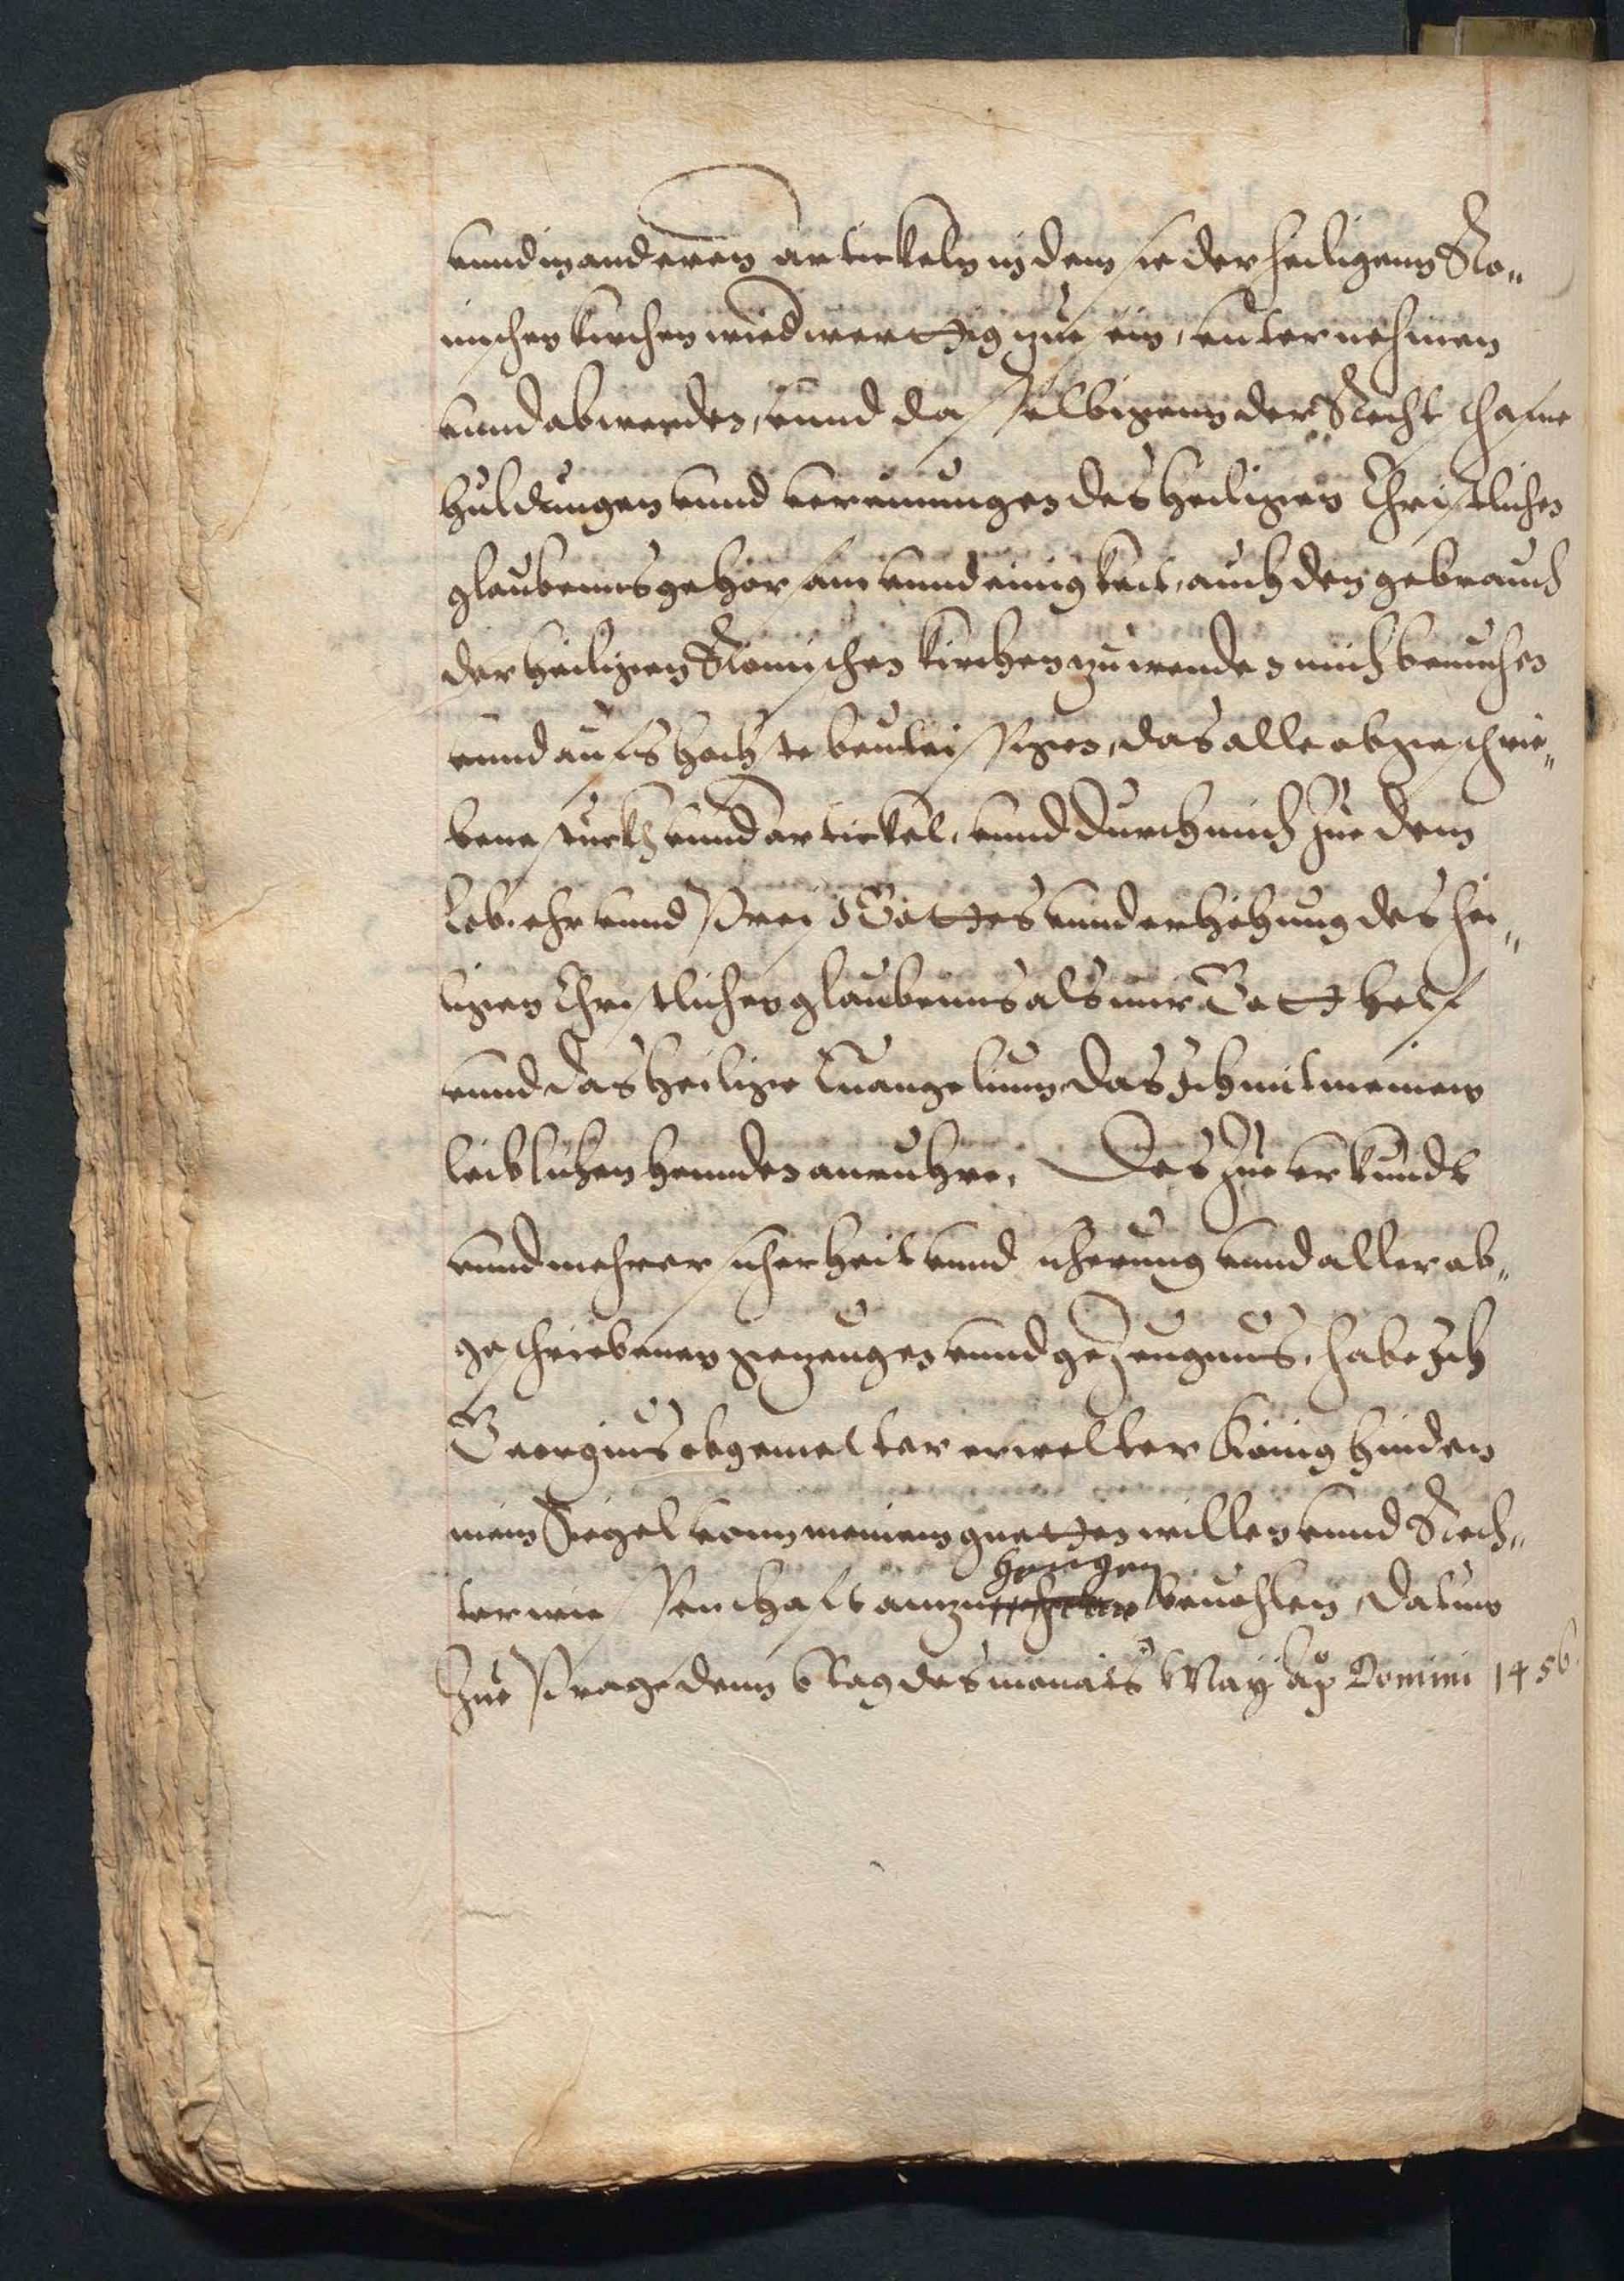 vnnd in anderen artickeln in dem sie der heiligenn Ro„
mischen kirchen wiederwerttig zue sein, vnternehmen
vnnd abwenden, vnnd dasselbigenn der Recht schafne
huldungen vnnd vereinungen des heiligen Christlichen
glaubenns gehorsam vnnd einigkeit, auch den gebrauch
der heiligen Romischen kirchen zu wenden mich bemuhen
vnnd aufs hochste bevleissigen, das alle abgeschrie„
bene stuckh vnnd artickel, vnnd durch mich Zue dem
lob, ehr vnnd Preiß Gottes vnnd erhöhung des hei„
ligen Christlichen glaubenns als mir Gott helf
vnnd das heilige Euangelium, das Ich mit meinen
leiblichen hennden anruhre. Des Zue vrkundt
vnnd mehrer sicherheit vnnd sicherung vnnd aller ab„
geschriebenen gezeugen vnnd geZeugnus, habe Ich
Georgius obgemelter erwelter König hinden
mein Siegel vonn meinem guetten willen vnnd Rech„
ter wissenschaft anzu hengen beuohlen, datum
Zue Prage denn 6 tag des monats May Ao Domini 1456.